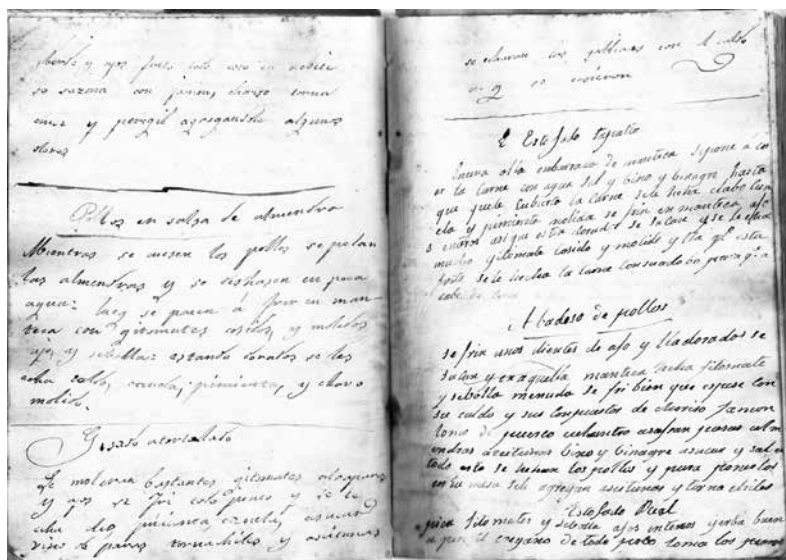 y ajos frito todo esto en aceite
se sazona con jamon, chorizo torna
chiles y peregil agregandole algunas
olores
Pollos en salsa de almendra
Mientras se cuesen los pollos se pelan
las almendras y se deshasen en poca
agua: luego se pasan á freir en man-
teca con gitomates cosidos, y molidos
ajos y sebolla: estando sonados se les
echa caldo, canela, pimienta, y clavo
molido.
Gisado acorralado
Se moleran bastantes gitomates
y ajos se fri todo junto y se le
echa clavo pimienta canela, asucar
vino pasas tornachiles y aseitunas
se echaran las gallinas con el caldo
en q se cosieron
Estofado
En una olla embarrada de manteca se pone á co
ser la carne con agua sal y bino y binagre hasta
que quede cubierta la carne se le hecha clabo cane
la y pimienta molida se frien en manteca ajo
s enteros asi que esta dorados se sacan y se le echa
mucho gitomate cosido y molido y lla q.e esta
frito se le hecha la carne con su caldo para q.e a
cabe de
Abadoso de pollos
se frien unos dientes de ajo y lla dorados se
sacan y en aquella manteca hecha jitomate
y sebolla menuda se fri bien que espese con
su caldo y sus compuestos de choriso jamon
lomo de puerco culantro asafran pasas alm
endras aseitunas bino y binagre asucar y sal en
todo esto se hechan los pollos y para ponerlos
en la mesa se le agregan aseitunas y torna chiles
Estofado Real
pica jitomates y sebolla ajos enteros yerba buen
a peregil oregano de todo poco lomo